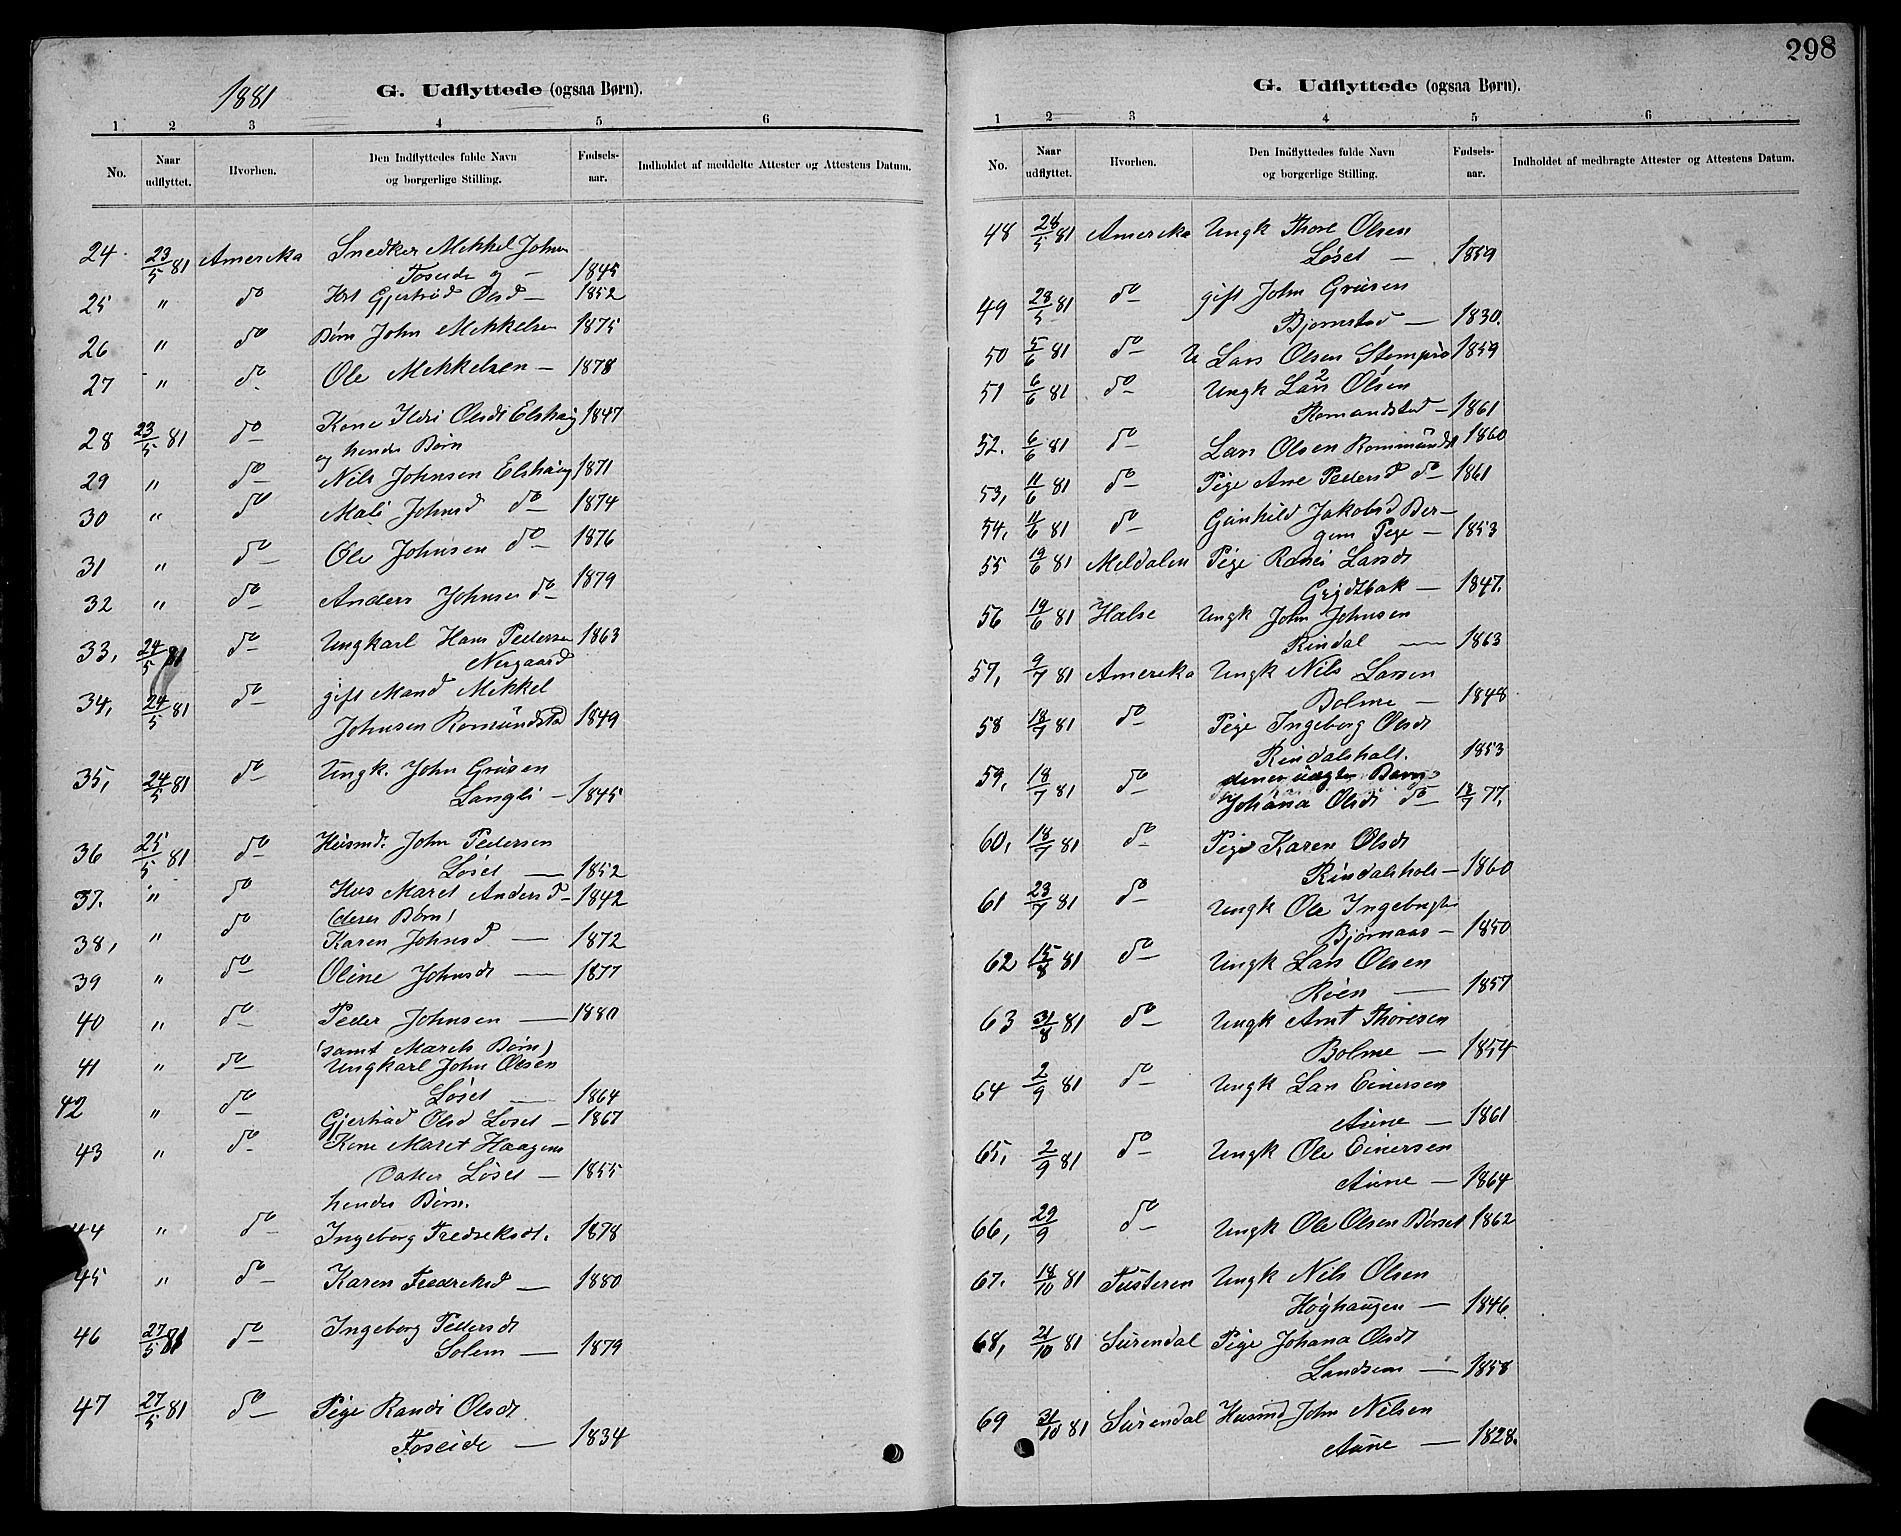 1881
G. Udflyttede (ogsaa Børn).
1 2 3 4 5 6
No. Naar udflyttet. Hvorhen. Den Indflyttedes fulde Navn og borgerlige Stilling. Fødsels-aar. Indholdet af meddelte Attester og Attestens Datum.
24 23/5 81 Amerika Snedker Mekkel Johns
Foseide og — 1845
25 " do Gjertrød Olsd — 1852
26 " do Børn John Mekkelsen 1875
27 " do Ole Mekkelsen — 1878
28 23/5 81 do Kone Ildri Olsdt Elshaug 1847
og hendes Børn
29 " do Nils Johnsen Elshaug 1871
30 " do Mali Johnsd do 1874
31 " do Ole Johnsen do 1876
32 " do Anders Johnsen do 1879
33, 24/5 81 do Ungkarl Hans Pedersen 1863
Nergaard
34, 24/5 81 do gift Mand Mekkel
Johnsen Romundstad 1849
35, 24/5 81 do Ungk. John Grusen
Langli — 1845
36 25/5 81 do Husmd. John Pedersen
Løset — 1852
37. " do Hus Maret Andersd — 1842
(deres Børn)
38, " do Karen Johnsd — 1872
39 " do Oline Johnsdt — 1877
40 " do Peder Johnsen — 1880
(samt Marets Børn)
41 " do Ungkarl John Olsen
Løset — 1864
42 " do Gjertrud Olsd Løset — 1867
43 " do Kone Maret Haagens
Datter Løset — 1855
hendes Børn.
44 " do Ingeborg Fredreksdt. 1878
45 " do Karen Fredreksd — 1880
46 27/5 81 do Ingeborg Pedersdt
Solem — 1879
47 27/5 81 do Pige Randi Olsdt
Foseide — 1834
298
G. Udflyttede (ogsaa Børn).
1 2 3 4 5 6
No. Naar udflyttet. Hvorhen. Den Indflyttedes fulde Navn og borgerlige Stilling. Fødsels-aar. Indholdet af medbragte Attester og Attestens Datum.
48 28/5 81 Amerika Ungk Thore Olsen
Løset — 1859
49 28/5 81 do gift John Grusen
Bjørnstad — 1830.
50 5/6 81 do U Lars Olsen 1859
51 6/6 81 do Ungk Lars 2 Olsen
Romundstad — 1861
52. 6/6 81 do Lars Olsen Romundst 1860
53, 11/6 81 do Pige Ane Pedersd do 1861
54, 11/6 81 do Gunhild Jakobsd Ber-
gem Pige — 1853
55 19/6 81 Meldalen Pige Larsdt
— 1847.
56 19/6 81 Halse Ungk John Johnsen
Rindal — 1863
57, 9/7 81 Amerika Ungk Nils Larsen
Bolme — 1848
58 18/7 81 do Pige Ingeborg Olsdt
Rindalshols. 1853
59, 18/7 81 do uægte Barn
Johana Olsdt do 18/7 77.
60, 18/7 81 do Pige Karen Olsdt
Rindalshols — 1860
61 23/7 81 do Ungk Ole Ingebrigts
Bjørnaas — 1850
62 15/8 81 do Ungk Lars Olsen
Røen — 1857
63 31/8 81 do Ungk Arnt Thoresen
Bolme — 1854
64 2/9 81 do Ungk Lars Einersen
Aune — 1861
65, 2/9 81 do Ungk Ole Einersen
Aune — 1864
66, 29/9 do Ungk Ole Olsen Børset 1862
67. 18/10 81 Tusteren Ungk Nils Olsen
Høghaugen — 1846.
68, 21/10 81 Surendal Pige Johana Olsdt
Landsem — 1858
69 31/10 81 Surendal Husmd John Nilsen
Aune — 1828.